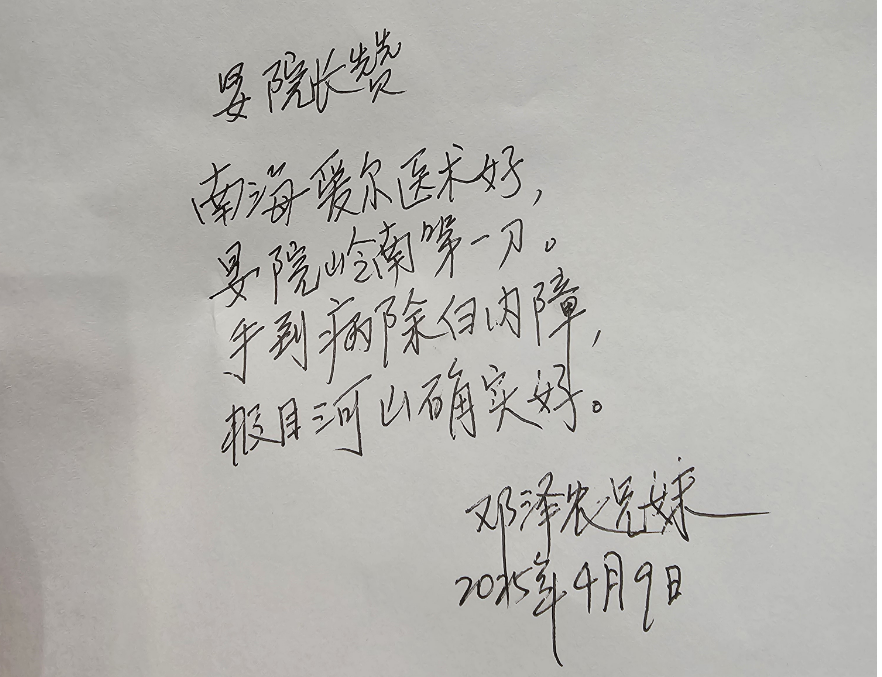 晏院长赞
南海爱尔医术好,
晏院岭南第一刀。
手到病除白内障,
极目河山确实好。
邓泽农兄妹
2025年4月9日